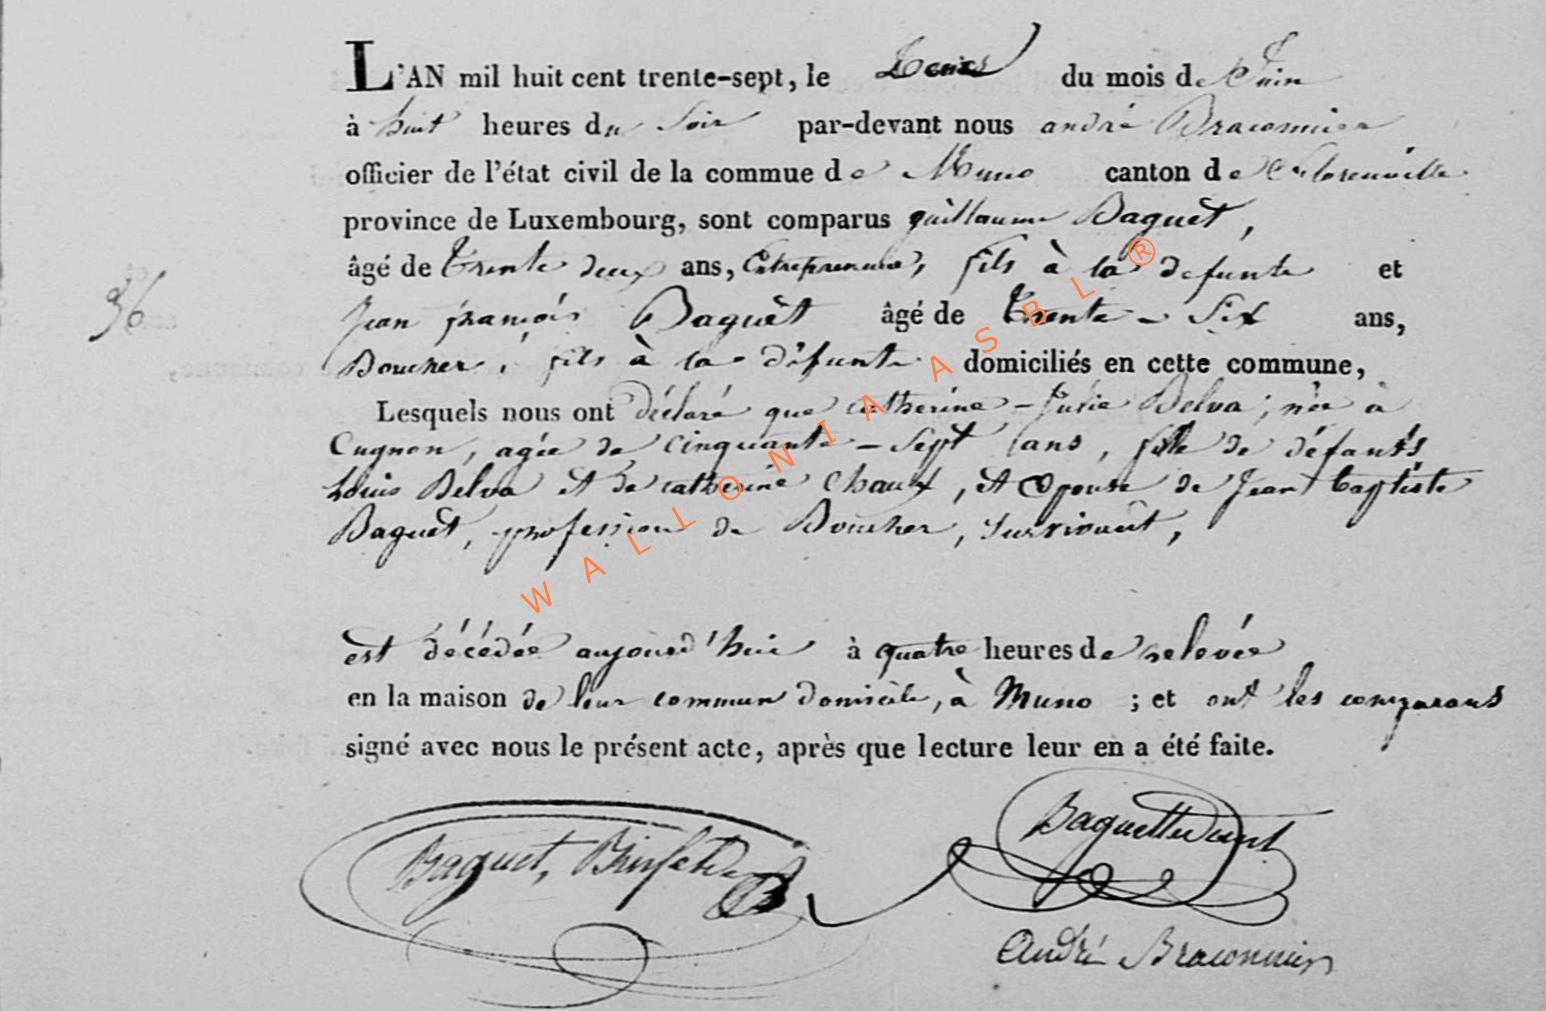 L'AN mil huit cent trente-sept, le du mois de Juin
à huit heures du Soir par-devant nous andré Braconnier
officier de l'état civil de la commue de Muno canton de
province de Luxembourg, sont comparus guillaume Baguet,
âgé de Trente deux ans, Entrepreneur, fils à la défunte et
36
Jean françois Baguet âgé de Trente-Six ans,
Boucher, fils à la défunte domiciliés en cette commune,
Lesquels nous ont déclaré que catherine-Julie Delva, née à
Cugnon, agée de cinquante-Sept ans, fille de défunts
Louis Delva et de catherine Chaux, et Epouse de Jean baptiste
Baguet, profession de Boucher, Survivant,
est décédée aujourd'hui à quatre heures de relevée
en la maison de leur commun domicile, à Muno ; et ont les comparans
signé avec nous le présent acte, après que lecture leur en a été faite.
Baguet,
André Braconnier
WALLONIA ASBL ®